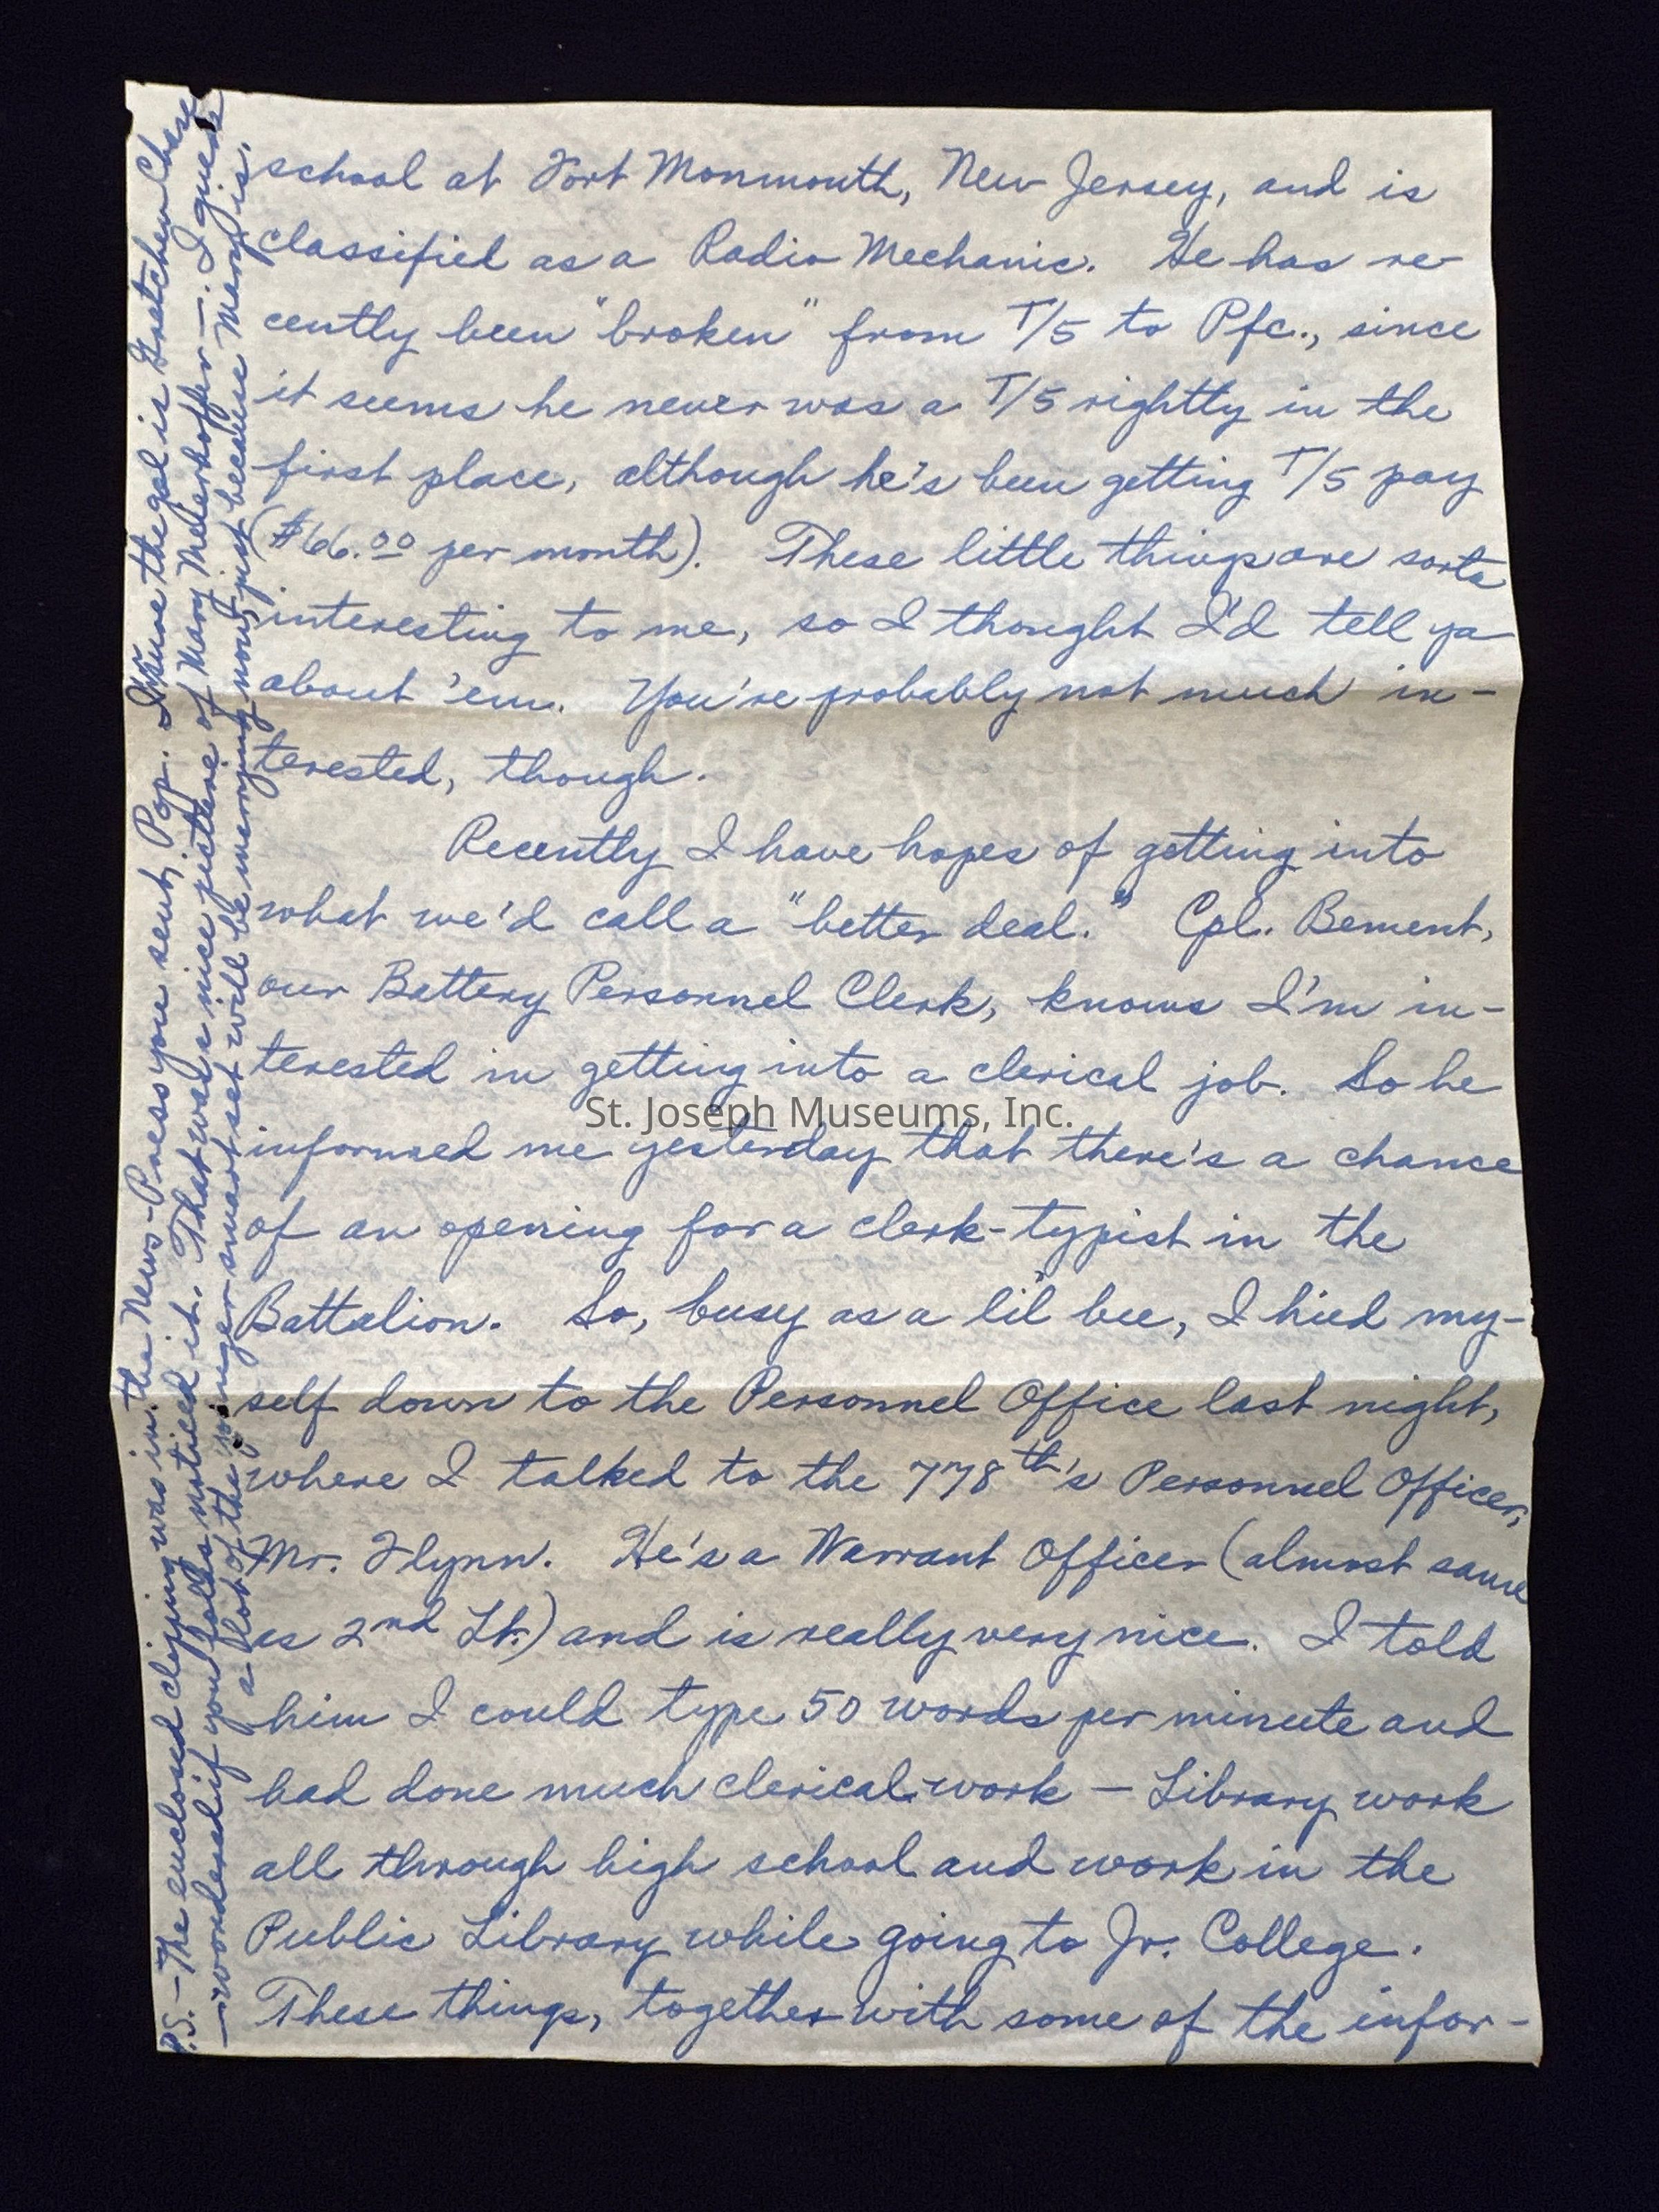 school at Fort Monmouth, New Jersey, and is
classified as a Radio Mechanic. He has re-
cently been "broken" from T/5 to Pfc., since
it seems he never was a T/5 rightly in the
first place, although he's been getting T/5 pay
($66.00 per month). These little things are sorta
interesting to me, so I thought I'd tell ya
about 'em. You're probably not much in-
terested, though.
Recently I have hopes of getting into
what we'd call a "better deal." Cpl. Bement,
our Battery Personnel Clerk, knows I'm in-
terested in getting into a clerical job. So he
informed me yesterday that there's a chance
of an opening for a clerk-typist in the
Battalion. So, busy as a li'l bee, I hied my-
self down to the Personnel Office last night,
where I talked to the 778th's Personnel Officer,
Mr. Flynn. He's a Warrant Officer (almost same
as 2nd Lt.) and is really very nice. I told
him I could type 50 words per minute and
had done much clerical work — Library work
all through high school and work in the
Public Library while going to Jr. College.
These things, together with some of the infor-
P.S. — The enclosed clipping was in the News-Press you sent, Pop. I know the gal is Gretchen Chase
— wondered if you folks noticed it. That was a nice picture of Mary Meierhoffer —. I guess
a lot of the younger smart set will be marrying now, just because Mary is.
St. Joseph Museums, Inc.